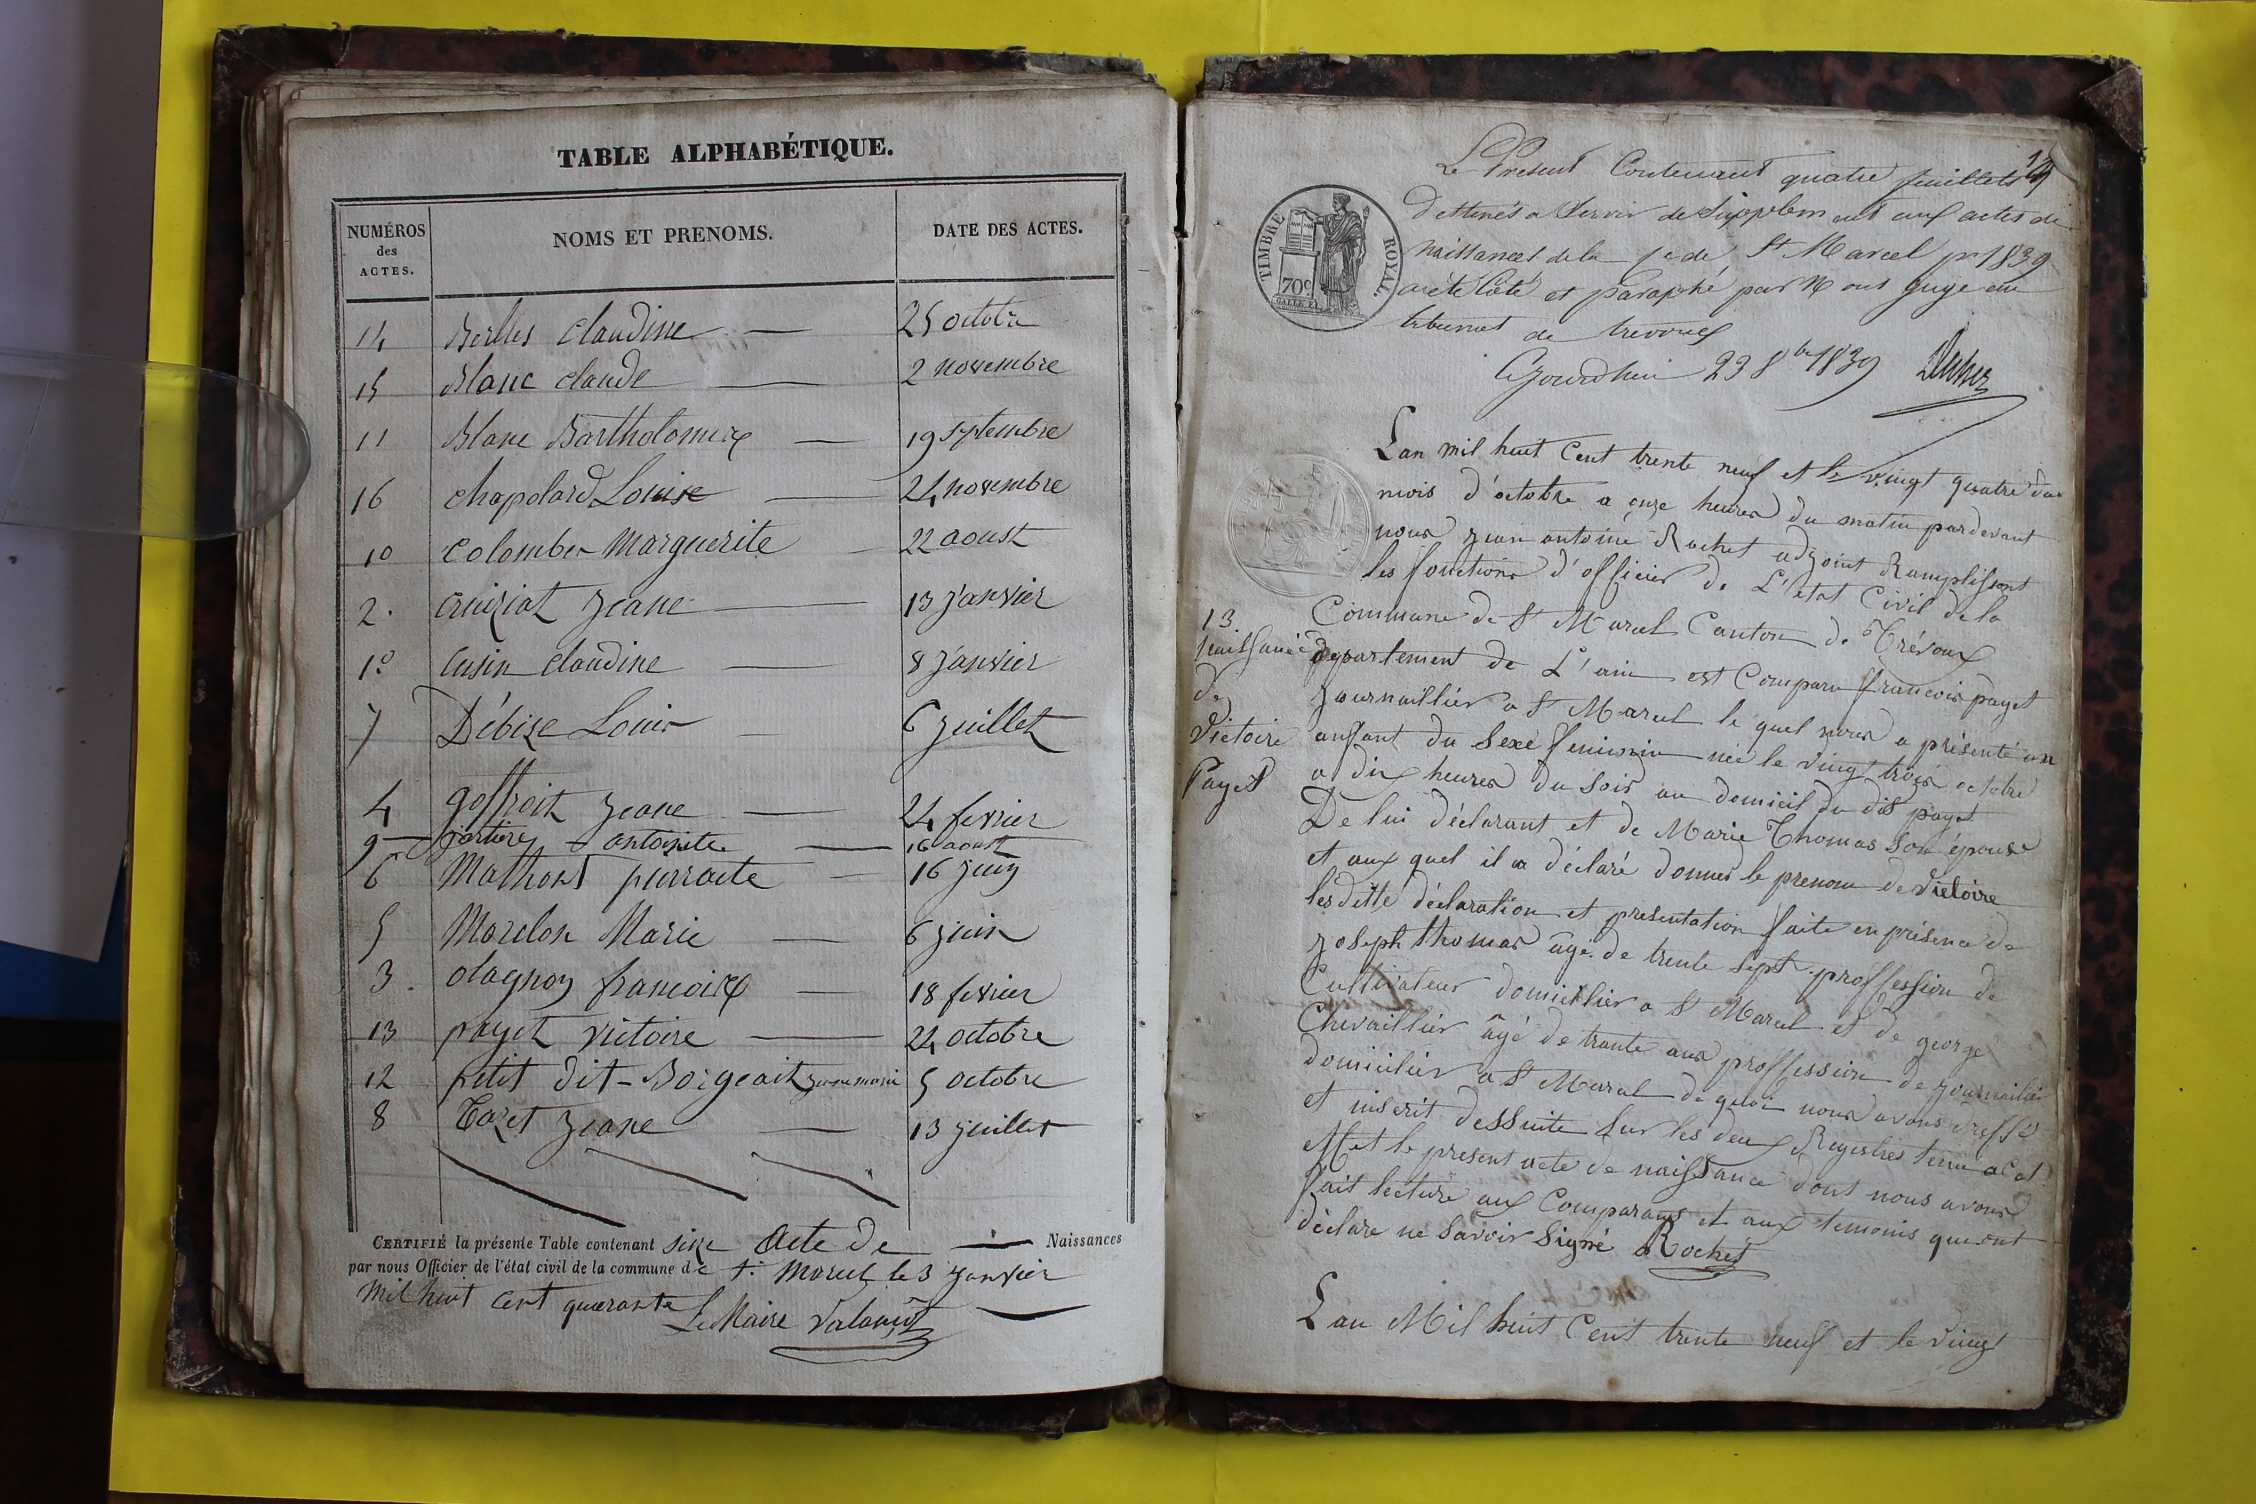 TABLE ALPHABÉTIQUE.
NUMÉROS des ACTES. NOMS ET PRENOMS. DATE DES ACTES.
14 Berlles Claudine 25 octobre
15 Blanc claude 2 novembre
11 Blanc Bartholomieux 19 septembre
16 chapolard Louise 24 novembre
10 Colomber Marguerite 22 aoust
2. cruiziat Jeane 13 janvier
1º Cusin claudine 8 janvier
7 Débize Louis 6 juillet
4 goffroit Jeane 24 fevrier
9 antoinete 16 aoust
6 Mathont pierraite 16 juin
5 Morelon Marie 6 juin
3. olagnon francoise 18 fevrier
13 payet victoire 24 octobre
12 petit dit-Borgeait jeanemarie 5 octobre
8 Tozet Jeane 13 juillet
CERTIFIÉ la présente Table contenant size Acte de Naissances
par nous Officier de l'état civil de la commune de St Marcel le 3 janvier
mil huit cent quarante Le Maire
Le Present Contenant quatre feuillets
destinés a Servir de Supplement aux actes de
naissances de la Ce de St Marcel pr 1839
a été Coté et paraphé par Nous juge au
tribunal de trevoux
Cejourdhui 23 8bre 1839
TIMBRE ROYAL.
70c
Lan mil huit Cent trente neuf et le vingt quatre du
mois d'octobre a onze heures du matin pardevant
nous jean antoine Rochet adjoint Ramplissont
les fonctions d'officier de L'état Civil de la
Commune de St Marcel Canton de Trévoux
département de L'ain est Comparu francois payet
journaillier a St Marcel le quel nous a présenté un
anfant du Sexe feminin née le vingt trois octobre
a dix heures du soir au domicil du dit payet
De lui déclarant et de Marie Thomas Son épouse
et aux quel il a déclaré donner le prenom de Victoire
les ditte déclaration et presentation faite en présence de
joseph thomas âgé de trente sept proffession de
Cultivateur domicillier a St Marcel et de george
Chevaillier âgé de trante ans proffession de journailier
domicilier a St Marcel de quoi nous avons dressé
et inscrit dessuite Sur les deux Registres tenu a cet
éffet le present acte de naissance dont nous avons
fait lecture aux Comparans et aux temoins qui ont
déclare ne Savoir Signé Rochet
13.
Naissance
De
Victoire
Payet
Lan Mil huit Cent trente neuf et le vingt